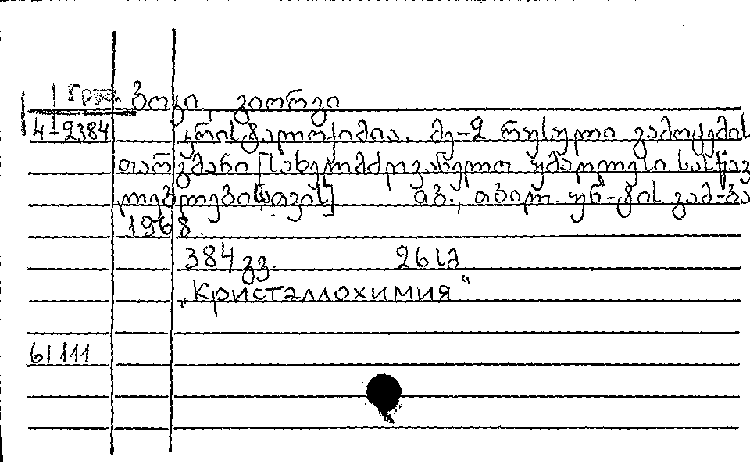 Груз. ბოკი გიორგი
4-2384 კრისტალოქიმია. მე-2 რუსული გამოცემის
თარგმანი [სახელმძღვანელო უმაღლესი სასწავ
ლებლებისთვის] თბ., თბილ. უნ-ტის გამ-ბა
1968
384 გვ. 26 სმ
„Кристаллохимия“
61111